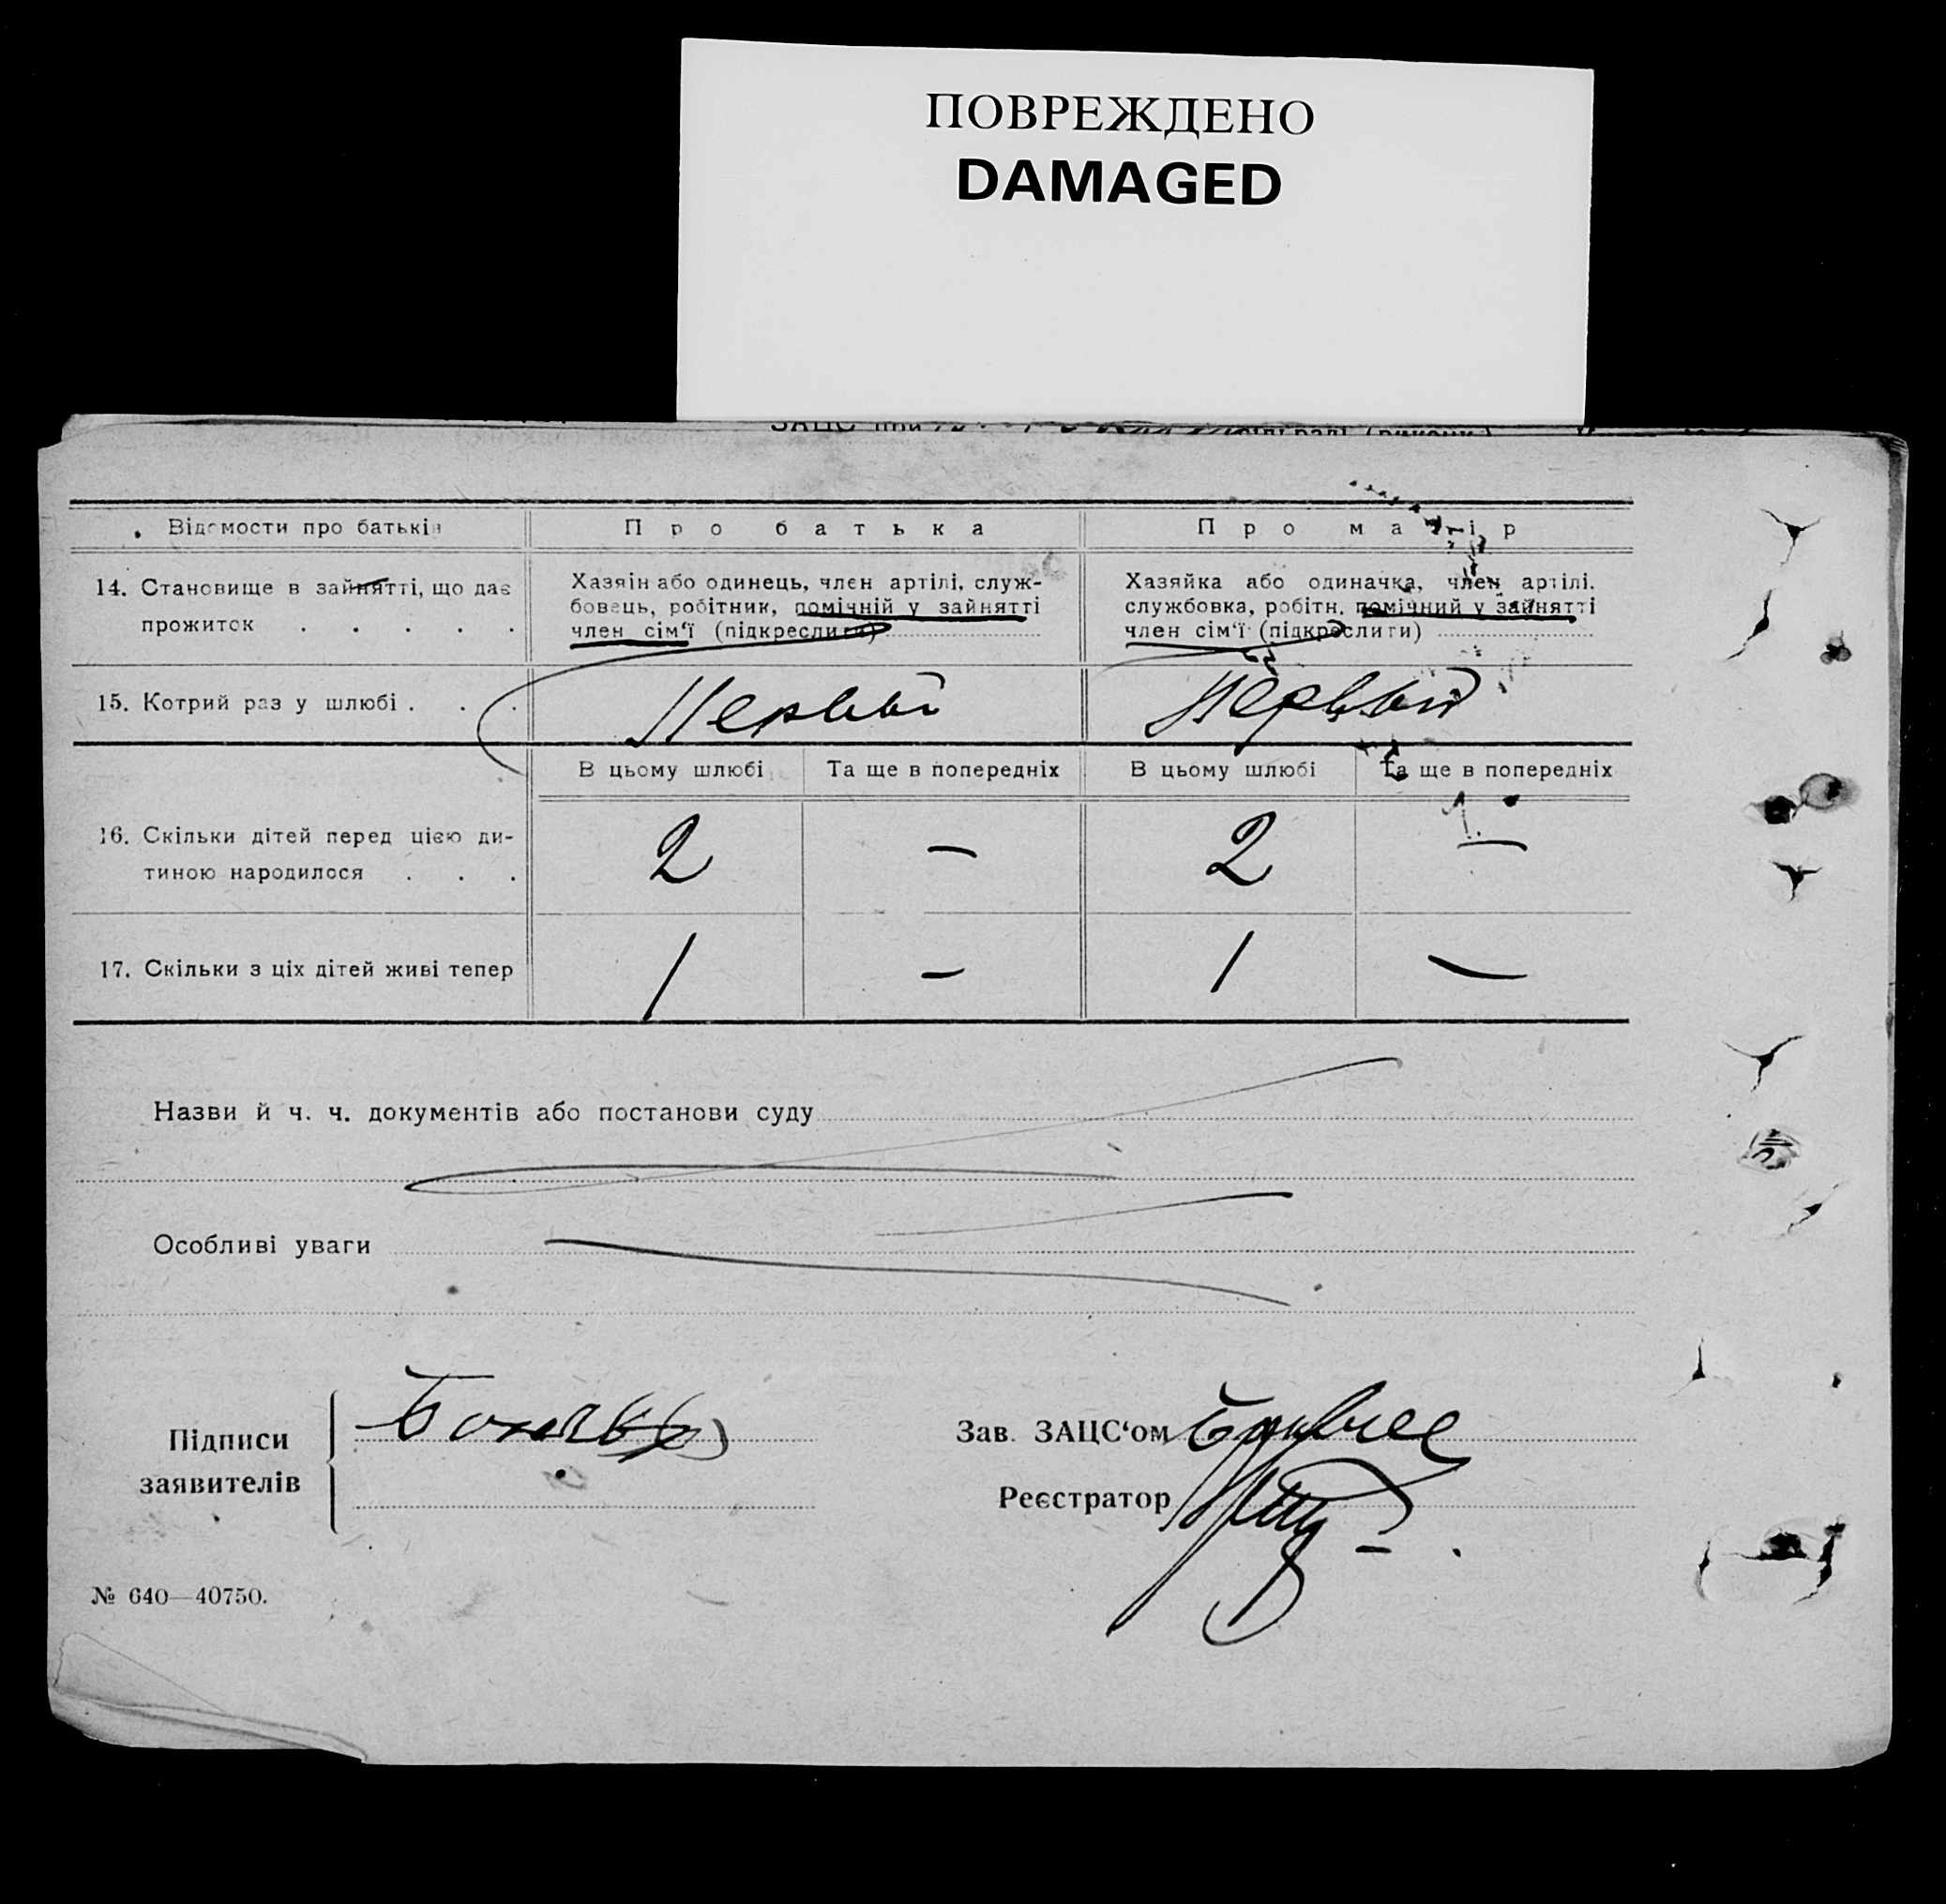 ПОВРЕЖДЕНО
DAMAGED
ЗАЦС при
Відомости про батьків Про батька Про матір
14. Становище в зайнятті, що дає прожиток . . . . .
Хазяін або одинець, член артілі, служ-
бовець, робітник, помічній у зайнятті
член сім'ї (підкреслити)
Хазяйка або одиначка, член артілі.
службовка, робітн. помічний у зайнятті
член сім'ї (підкреслити)
15. Котрий раз у шлюбі . . . Первый Первый
В цьому шлюбі Та ще в попередніх В цьому шлюбі Та ще в попередніх
16. Скільки дітей перед цією ди-
тиною народилося . . . 2 — 2 —
17. Скільки з ціх дітей живі тепер 1 — 1 —
Назви й ч. ч. документів або постанови суду
Особливі уваги
Підписи
заявителів
Зав. ЗАЦС'ом
Реєстратор
№ 640—40750.